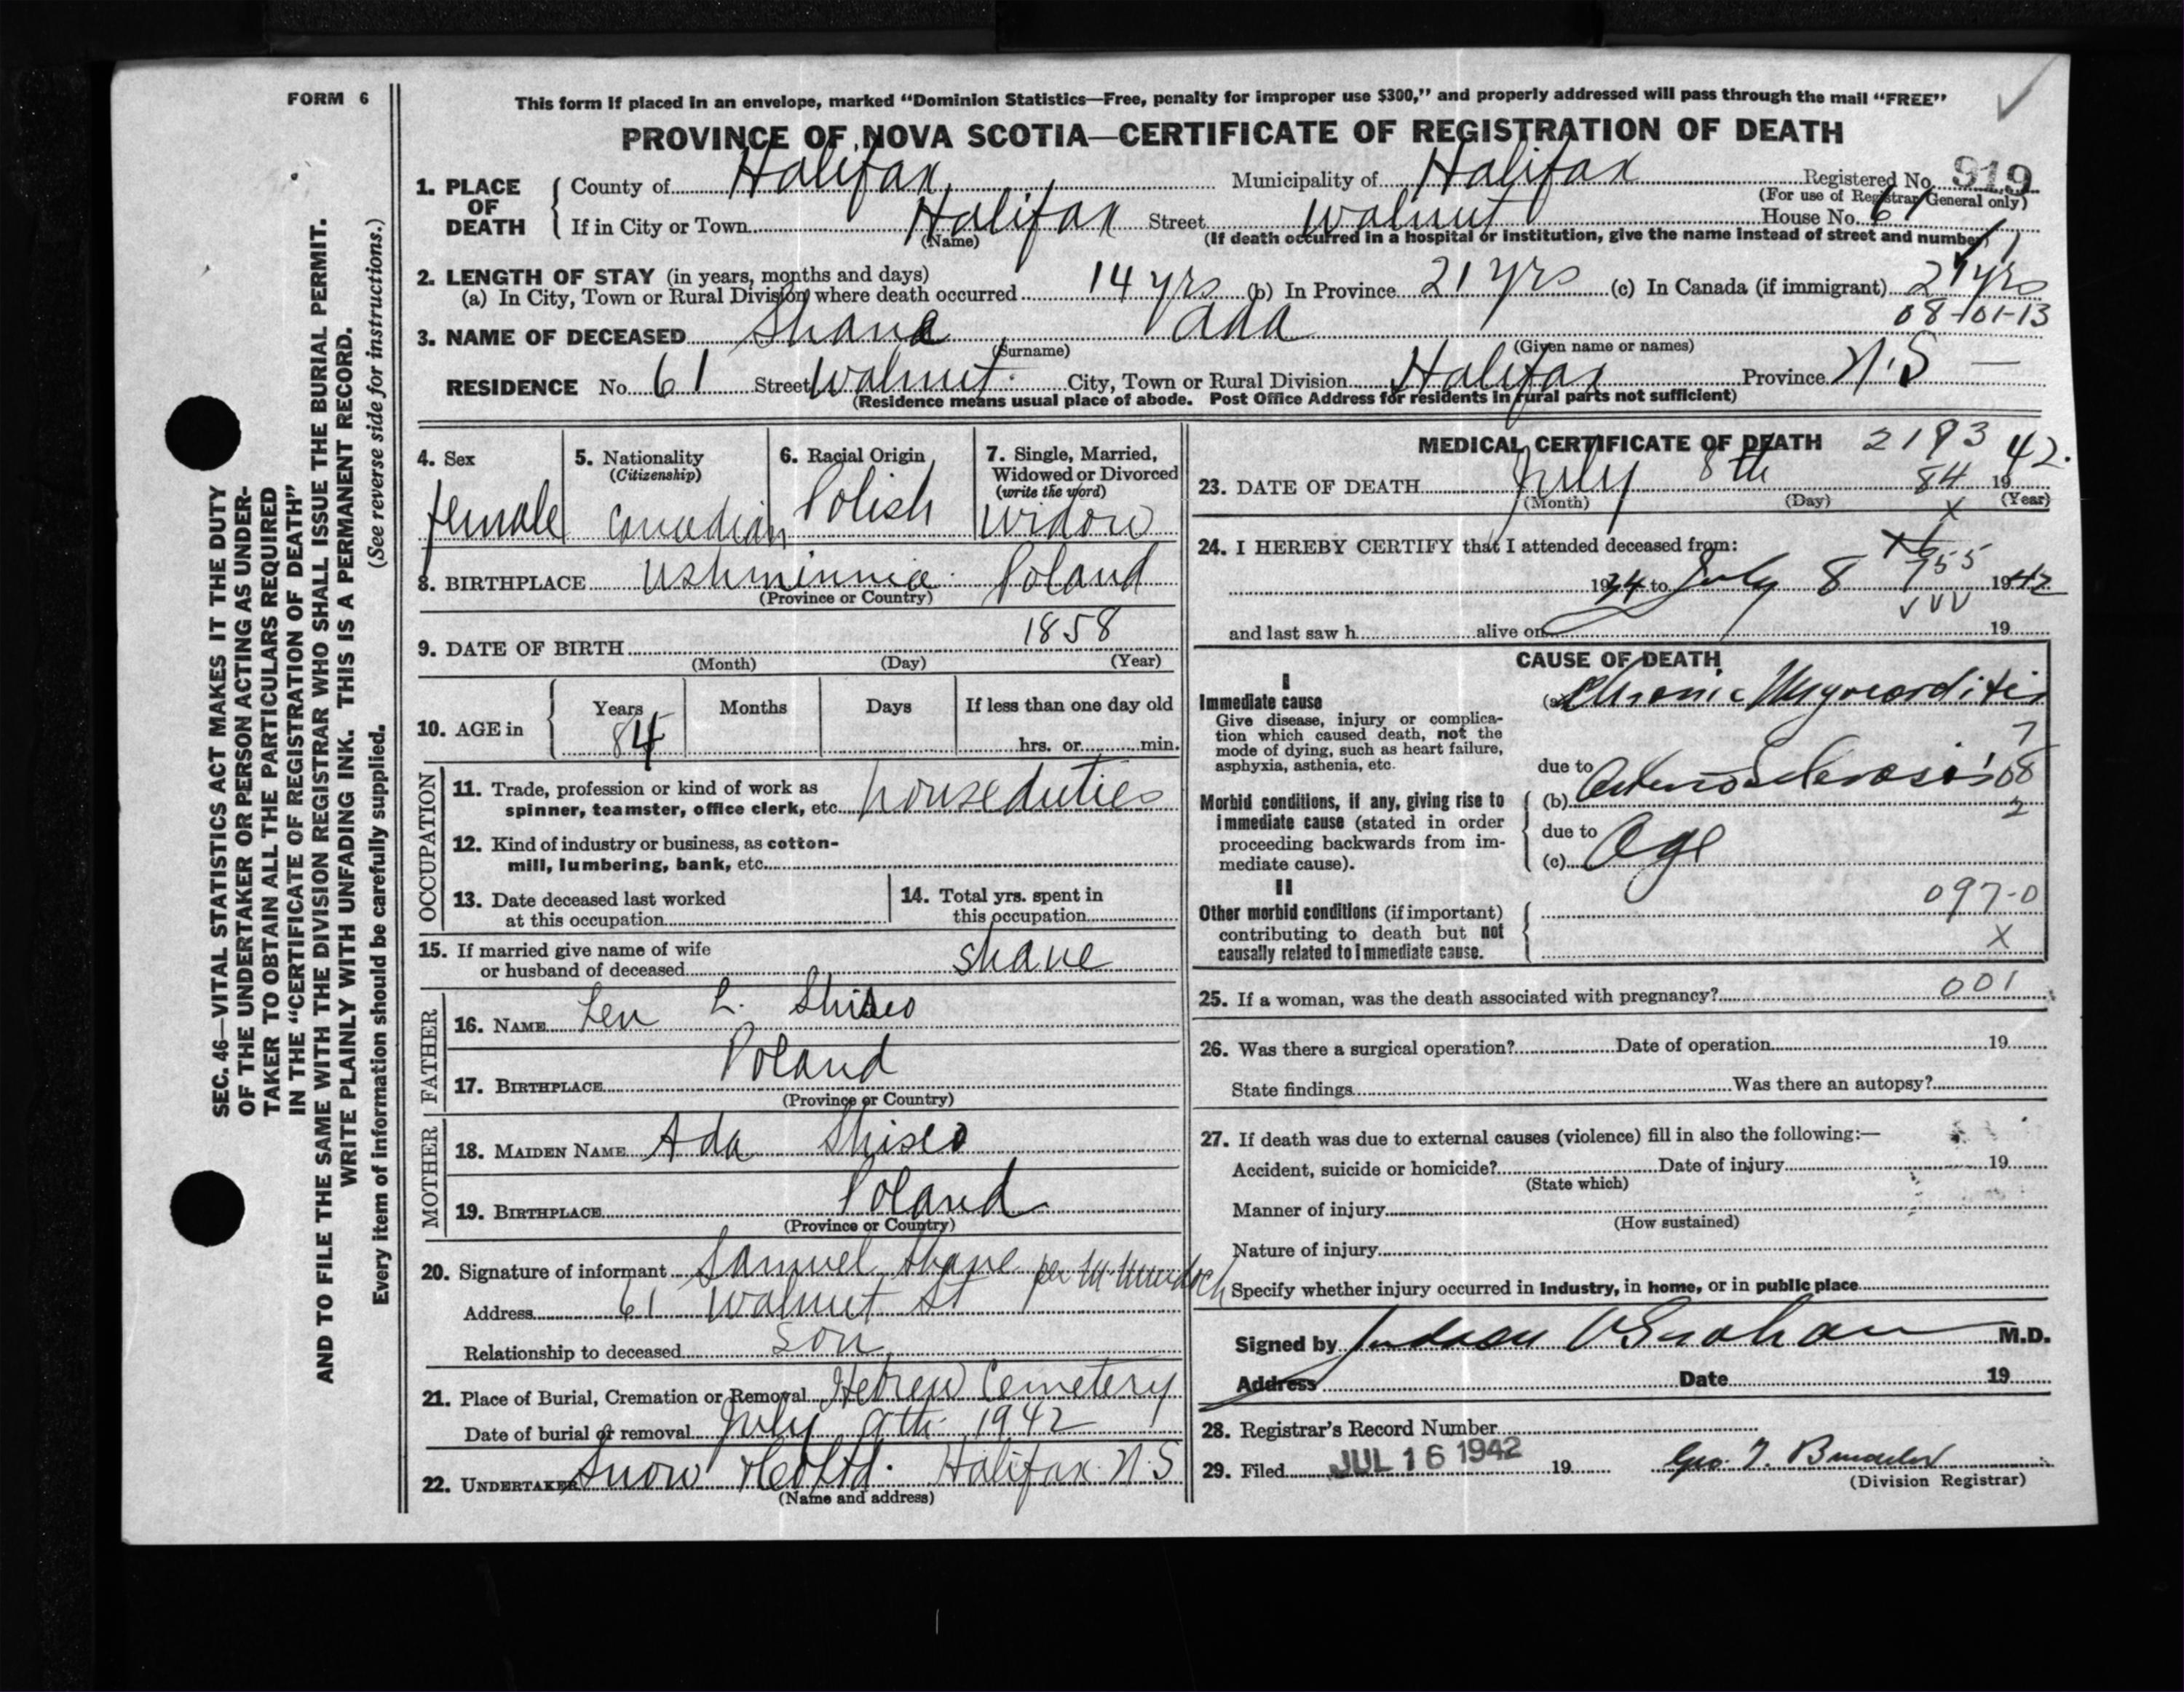 FORM 6
This form if placed in an envelope, marked “Dominion Statistics—Free, penalty for improper use $300,” and properly addressed will pass through the mail “FREE”
PROVINCE OF NOVA SCOTIA—CERTIFICATE OF REGISTRATION OF DEATH
1. PLACE OF DEATH
County of Halifax Municipality of Halifax Registered No. 919
(For use of Registrar General only)
If in City or Town Halifax Street Walnut House No. 61
(Name) (If death occurred in a hospital or institution, give the name instead of street and number)
2. LENGTH OF STAY (in years, months and days)
(a) In City, Town or Rural Division where death occurred 14 yrs (b) In Province 21 yrs (c) In Canada (if immigrant) 21 yrs
08-101-13
3. NAME OF DECEASED Shane Ada
(Surname) (Given name or names)
RESIDENCE No. 61 Street Walnut City, Town or Rural Division Halifax Province N.S —
(Residence means usual place of abode. Post Office Address for residents in rural parts not sufficient)
4. Sex
female
5. Nationality
(Citizenship)
Canadian
6. Racial Origin
Polish
7. Single, Married,
Widowed or Divorced
(write the word)
Widow
8. BIRTHPLACE Ushminnia Poland
(Province or Country)
9. DATE OF BIRTH 1858
(Month) (Day) (Year)
10. AGE in
Years Months Days If less than one day old
84 hrs. or min.
OCCUPATION
11. Trade, profession or kind of work as
spinner, teamster, office clerk, etc. house duties
12. Kind of industry or business, as cotton-
mill, lumbering, bank, etc.
13. Date deceased last worked
at this occupation
14. Total yrs. spent in
this occupation
15. If married give name of wife
or husband of deceased Shane
FATHER
16. NAME L. 
17. BIRTHPLACE Poland
(Province or Country)
MOTHER
18. MAIDEN NAME Ada
19. BIRTHPLACE Poland
(Province or Country)
20. Signature of informant Samuel Shane per M. Murdoch
Address 61 Walnut St
Relationship to deceased Son
21. Place of Burial, Cremation or Removal Hebrew Cemetery
Date of burial or removal July 9th 1942
22. UNDERTAKER Snow & Co Ltd. Halifax N.S
(Name and address)
MEDICAL CERTIFICATE OF DEATH 2193
23. DATE OF DEATH July 8th 84 19 42.
(Month) (Day) (Year)
X
24. I HEREBY CERTIFY that I attended deceased from:
1934 to July 8 755 1942
and last saw h alive on 19
CAUSE OF DEATH
I
Immediate cause
Give disease, injury or complica-
tion which caused death, not the
mode of dying, such as heart failure,
asphyxia, asthenia, etc.
(a) Chronic Myocarditis
7
due to
(b) Arteriosclerosis 08
2
Morbid conditions, if any, giving rise to
immediate cause (stated in order
proceeding backwards from im-
mediate cause).
due to
(c) Age
II
Other morbid conditions (if important)
contributing to death but not
causally related to immediate cause.
097-0
X
25. If a woman, was the death associated with pregnancy? 001
26. Was there a surgical operation? Date of operation 19
State findings Was there an autopsy?
27. If death was due to external causes (violence) fill in also the following:—
Accident, suicide or homicide? Date of injury 19
(State which)
Manner of injury
(How sustained)
Nature of injury
Specify whether injury occurred in industry, in home, or in public place
Signed by Judson V Graham M.D.
Address Date 19
28. Registrar's Record Number
29. Filed JUL 16 1942 19
(Division Registrar)
SEC. 46—VITAL STATISTICS ACT MAKES IT THE DUTY
OF THE UNDERTAKER OR PERSON ACTING AS UNDER-
TAKER TO OBTAIN ALL THE PARTICULARS REQUIRED
IN THE “CERTIFICATE OF REGISTRATION OF DEATH”
AND TO FILE THE SAME WITH THE DIVISION REGISTRAR WHO SHALL ISSUE THE BURIAL PERMIT.
WRITE PLAINLY WITH UNFADING INK. THIS IS A PERMANENT RECORD.
Every item of information should be carefully supplied. (See reverse side for instructions.)